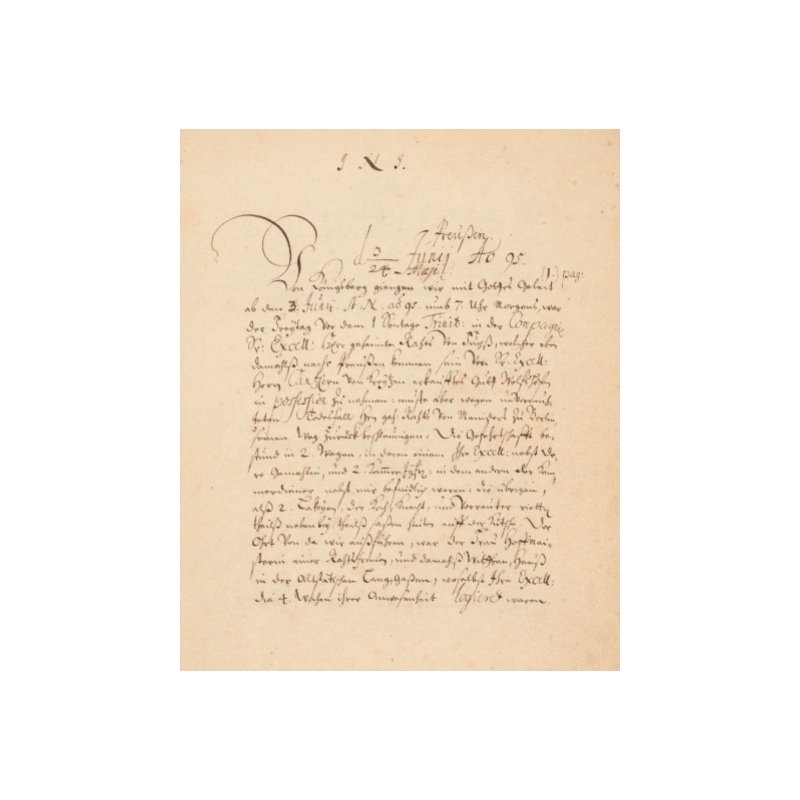 J. N. J.
Preußen.
d. 3/24 Junij/Maji Ao 95.
(1.) pag:
Von Königsberg giengen wir mit Gottes Geleit
ab den 3. Junij. St. N. ao 95. umb 7. Uhr Morgens, war
der Freytag vor dem 1 Sontage Trinit: in der Compagnie
Sr: Excell: Herr geheimten Rahts von Fuchß, welcher eben
damahlß nach Preußen kommen sein von Sr. Excell:
Herrn Cantzlern von Kreytzen erkaufftes Guth
in possession zu nehmen: muste aber wegen
Todesfall Hrn geh: Rahts von Meinders zu Berlin,
seinen Weg zurück beschleunigen. Die Gefertschafft be-
stund in 2. Wagen, in deren einem Ihre Excell: nebst De-
ro Gemahlin, und 2. in dem andern der Cam
merdiener nebst mir befindlich waren: die übrigen,
alß 2. Laqeyen, der Koch, Knecht, und Vorreuter ritten
theilß nebenbey, theilß saßen hinten auff der Kutsche. Der
Ohrt von da wir außfuhren, war der Frau Hoffmei-
sterin einer Rahtsherrin, und damahlß Wittfrau, Hauß
in der Altstätschen Langgaßen, woselbst Ihre Excell:
die 4. Wochen ihrer Anwesenheit logieret waren.